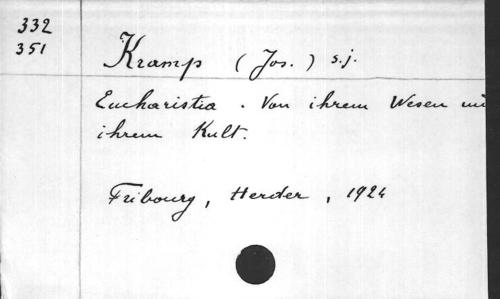 332
351
Kramp (Jos.) s.j.
Eucharistia. Von ihrem Wesen
ihrem Kult.
Fribourg, Herder, 1924